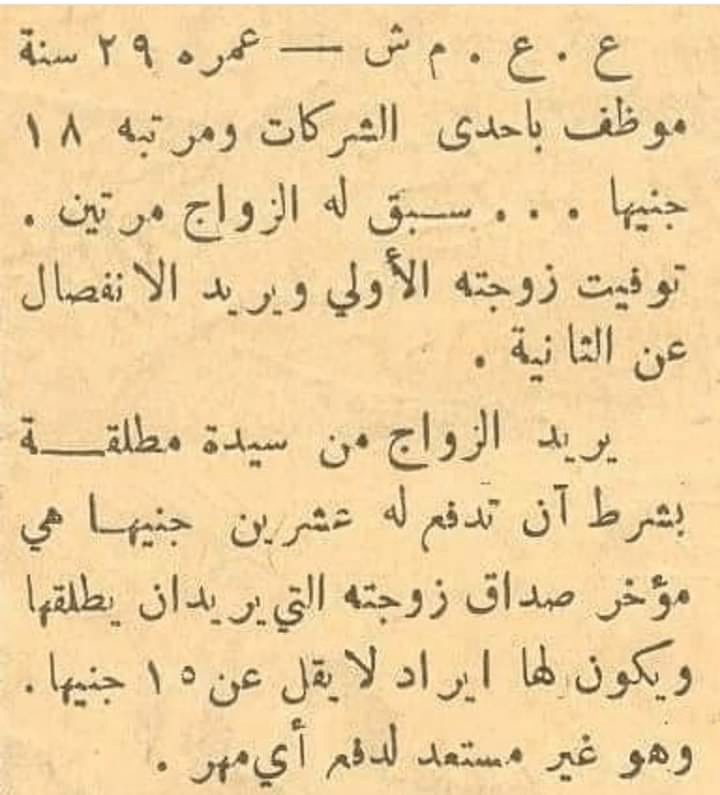 ع . ع . م ش — عمره ٢٩ سنة
موظف باحدى الشركات ومرتبه ١٨
جنيها . . . سبق له الزواج مرتين .
توفيت زوجته الأولي ويريد الانفصال
عن الثانية .
يريد الزواج من سيدة مطلقة
بشرط آن تدفع له عشرين جنيها هي
مؤخر صداق زوجته التي يريدان يطلقها
ويكون لها ايراد لا يقل عن ١٥ جنيها .
وهو غير مستعد لدفع أي مهر .